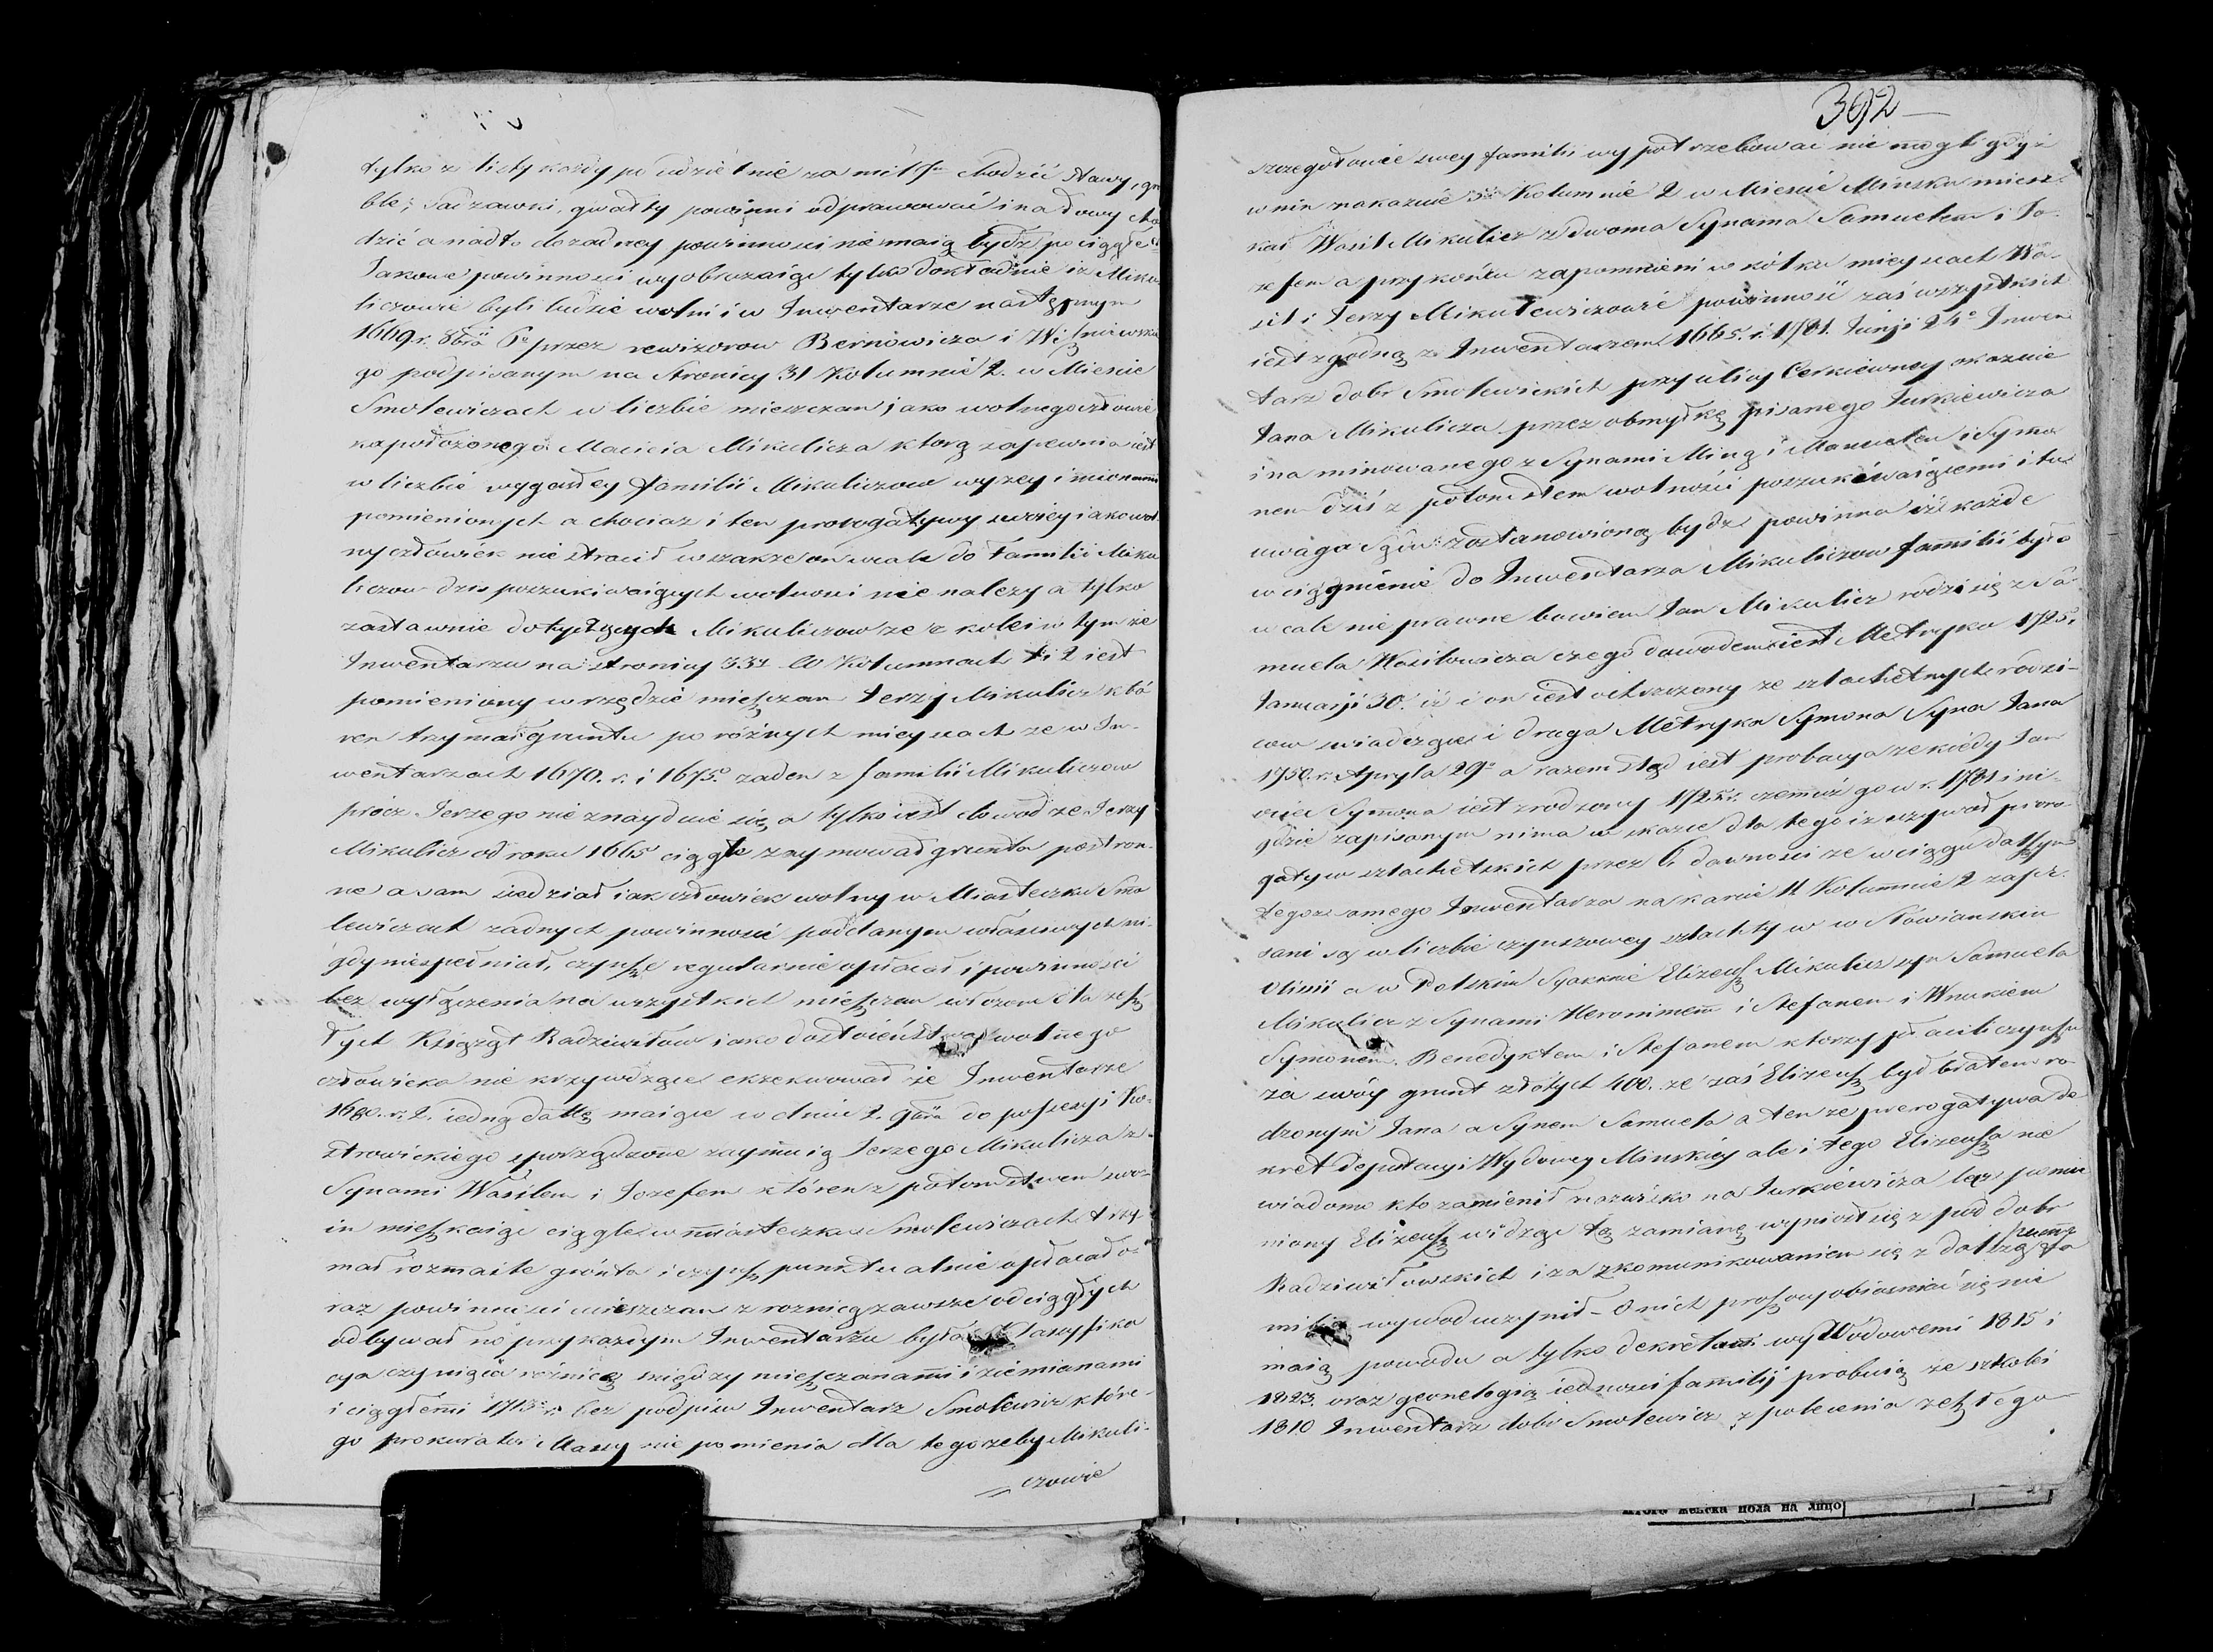 tylko z listy każdy po udzielnie za mil chodzić stawy, gro
ble, Sadzawki, gwałty powinni odprawować i na łowy cho
dzić a nadto do żadney powinności nie maią bydź pociągłe
Jakowe powinności wyobrażaiąc tylko dokładnie iż Miku
liczowie byli ludzie wolni i w Inwentarze następnym
1669 r. 8bra 6° przez rewizorow Bernowicza i Wiszniewskie
go podpisanym na stronicy 31 Kolumnie 2. w Miescie
Smolewiczach w liczbie mieszczan jako wolnego człowie
ka położonego Macieia Mikulicza ktorą zapewnia iest
w liczbie wygasłey familii Mikuliczow wyżey imionami
pomienionych a chociaż i ten prerogatywy swoiey iako wol
ny człowiek nie stracił wszakże on wcale do Familii Miku
liczow dziś poszukiwaiących wolności nie należy a tylko
zastawnie dotyczących Mikuliczow że z kolei w tym że
Inwentarzu na stronicy 33 w Kolumnach 1 i 2 iest
pomieniony w rzędzie mieszczan Jerzy Mikulicz któ
ren trzymał grunta po różnych mieyscach że w In-
wentarzach 1670. r. i 1675. żaden z familii Mikuliczow
prócz Jerzego nie znayduie się, a tylko iest dowod że Jerzy
Mikulicz od roku 1665 ciągle zaymował grunta postron-
ne a sam siedział iak człowiek wolny w Miasteczku Smo
lewiczach żadnych powinności poddanym właściwych ni-
gdy niespełniał, czynsze regularnie opłacał i powinności
bez wyłączenia na wszystkich mieszczan włożone dla zesz
łych Książąt Radziwiłłow iako dostoieństwa wolnego
człowieka nie krzywdzące exekwował że Inwentarze
1680. r. 2. iedną dattę maiące w dniu 2. 9bra do possesyi Ko-
strowickiego sporządzone zaymuią Jerzego Mikulicza z
Synami Wasilem i Jozefem któren z potomstwem swo-
im mieszkaiąc ciągle w miasteczku Smolewiczach trzy-
mał rozmaite grunta i czynsz punktualnie opłacał o-
raz powinności mieszczan z roznicą zawsze od ciągłych
odbywał no przy każdym Inwentarzu była klassyfika
cya czyniąca różnicę między mieszczanami i ziemianami
i ciągłemi 1713 r. bez podpisu Inwentarz Smolewicz które-
go prokurator Massy nie pomienia dla tego żeby Mikuli-
czowie
392
szczegołowie swey familii wypotrzebować nie mogli gdyż
w nim nakazuie Kolumnie 2 w Miescie Mińsku miesz-
kał Wasil Mikulicz z dwoma Synama Samuelem i Jo-
zefem a przykońcu zapomnieni w kótku mieyscach Wa-
sil i Jerzy Mikulewiczowie powinność zaś wszystkich
iest zgodną z Inwentarzem 1665. r. 1781. Junji 24° Inwen
tarz dobr Smolewickich przy ulicy Cerkiewney okazuie
Jana Mikulicza przez obmyłkę pisanego Jurkiewicza
inaminowanego z Synami Miną i Manuelem i Symo
nem dziś z potomstwem wolności poszukiwaiącemi i tu
uwaga Sądu zostanowioną bydź powinna iż każde
wciągnienie do Inwentarza Mikuliczow familii było
wcale nieprawne bowiem Jan Mikulicz rodzi się z Sa
muela Wasilowicza czego dowodem iest Metryka 1725.
Januarji 30. iż i on iest ochrzczony ze szlachetnych rodzi-
cow swiadcząca i druga Metryka Symona Syna Jana
1750. r. Apryla 29° a razem stąd iest probacya że kiedy Jan
ociec Symona iest zrodzony 1725. r. czemuż go w r. 1781 ni-
gdzie zapisanym nima w skazie dla tego iż używał prero
gatyw szlachetskich przez 6. dawności że w ciągu dalszym
tegoż samego Inwentarza na karcie 11 Kolumnie 2 zapi-
sani są w liczbie czynszowey szlachty w w Słowianskiu
Olinii a w Petskim Elizeusz Mikulicz syn Samuela
Mikulicz z Synami Heronimem i Stefanem i Wnukiem
Symonem. Benedyktem i Stefanem ktorzy płacili czynszu
za swóy grunt złotych 400. że zaś Elizeusz był bratem ro
dzonym Jana a Synem Samuela a ten że prerogatywa de
kret deputacyi Wywodowey Minskiey ale i tego Elizeusza nie
wiadomo kto zamienił nazwisko na Jurkiewicza lecz pomie
niony Elizeusz widząc tę zamianę wyniosł się z pod dobr
Radziwiłłowskich i za zkomunikowaniem się z dalszą swoią
milią wywod uczynił - O nich proszący obiasniać się nie
maią powodu a tylko dekretami wywodowemi 1815 i
1823. oraz geonelogią iedności familij probuią że szkolei
1810 Inwentarz dobr Smolewicz z polecenia zeszłego